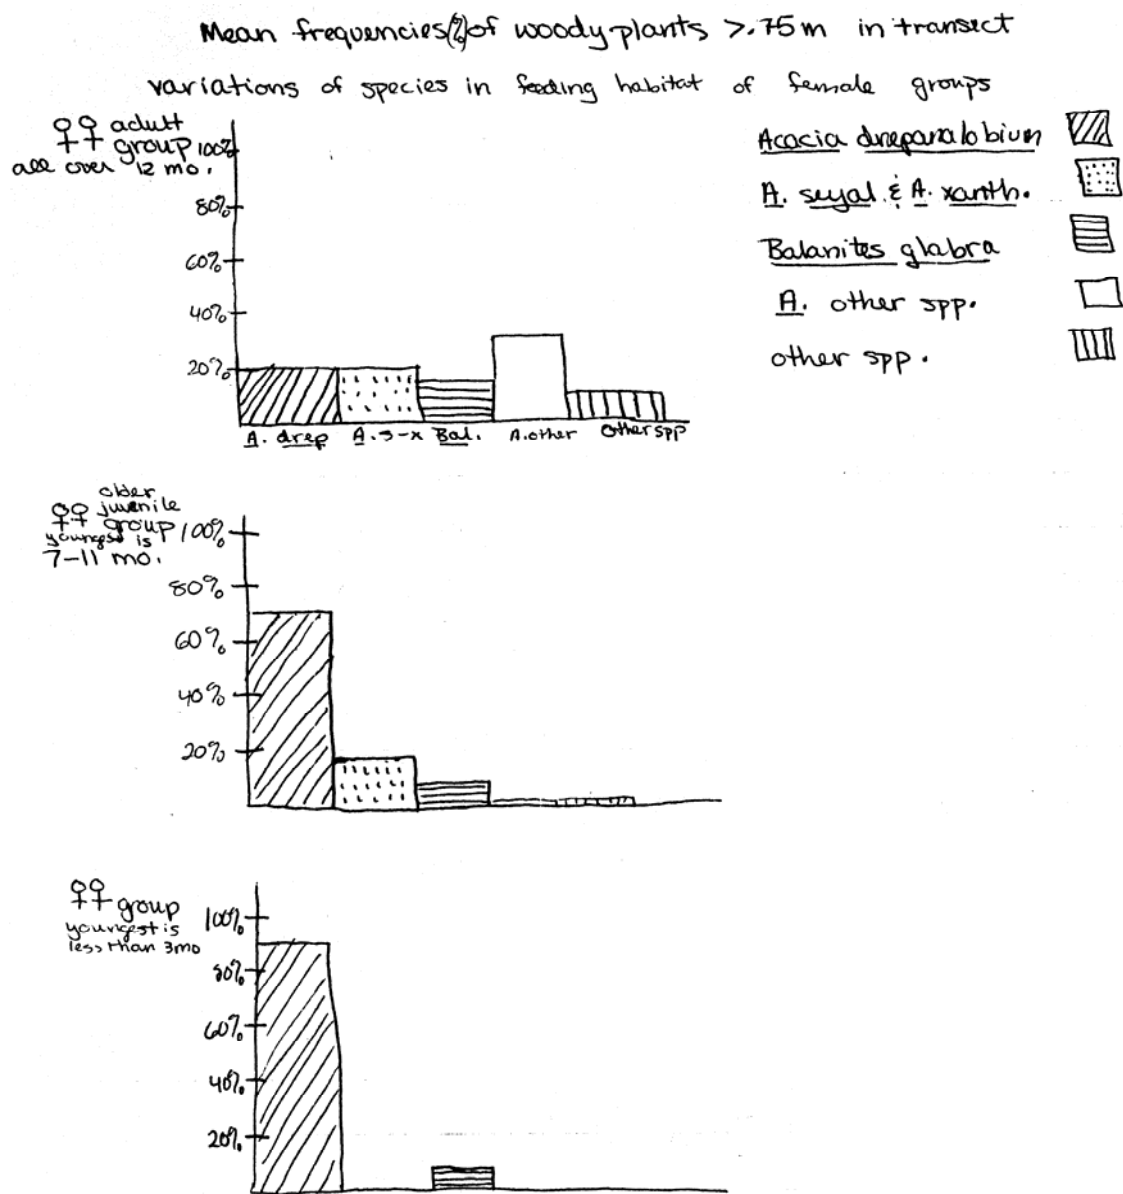 Mean frequencies(%) of woody plants >.75m in transect
variations of species in feeding habitat of female groups
♀♀ adult
group
all over 12 mo.
100%
80%
60%
40%
20%
A. drep
A. s-x
Bal.
A. other
Other spp
Acacia drepanalobium
A. seyal. & A. xanth.
Balanites glabra
A. other spp.
other spp.
older
♀♀ juvenile
group
youngest is
7-11 mo.
100%
80%
60%
40%
20%
♀♀ group
youngest is
less than 3mo
100%
80%
60%
40%
20%